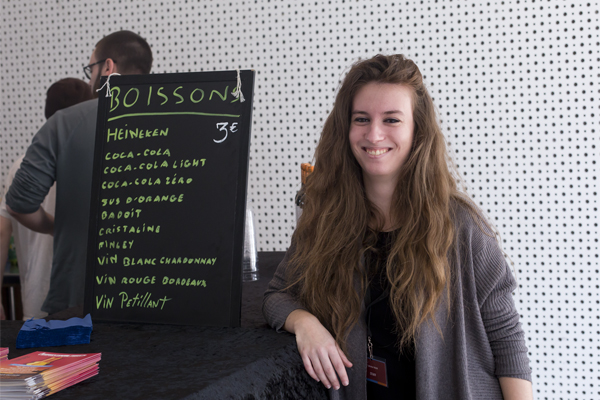 BOISSONS
HEINEKEN 3€
COCA-COLA
COCA-COLA LIGHT
COCA-COLA ZÉRO
JUS D'ORANGE
BADOIT
CRISTALINE
FINLEY
VIN BLANC CHARDONNAY
VIN ROUGE BORDEAUX
VIN PETILLANT